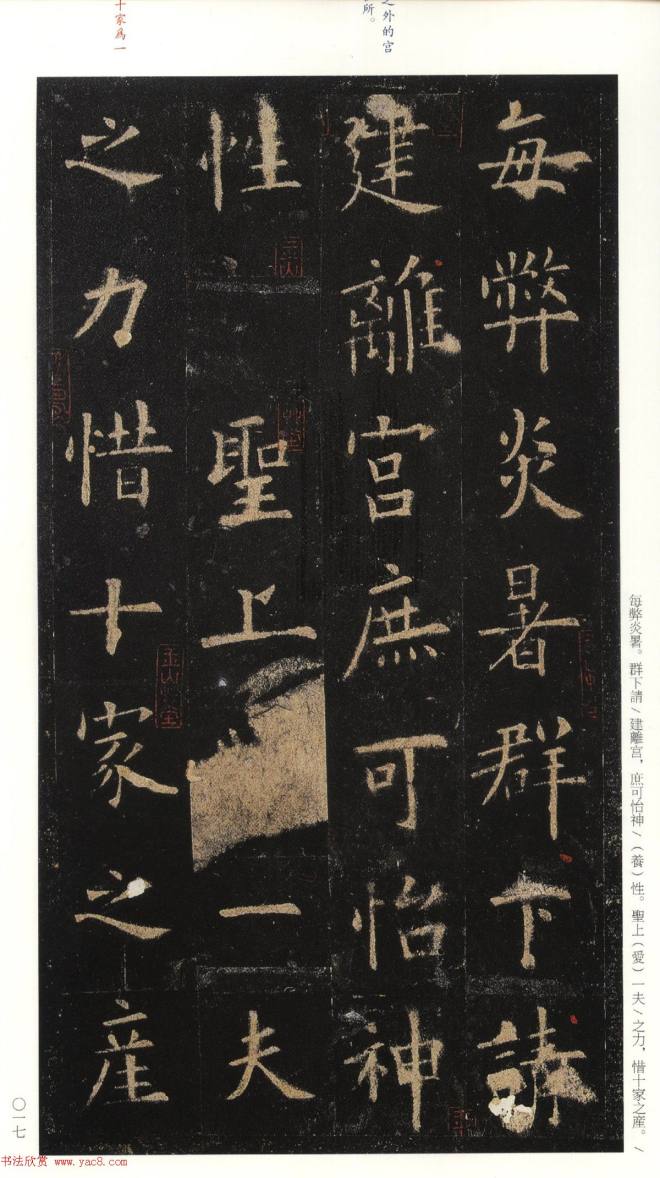 每弊炎暑群下請
建離宮庶可怡神
性聖上一夫
之力惜十家之産
每弊炎暑。群下請/建離宮，庶可怡神/（養）性。聖上（愛）一夫/之力，惜十家之産。/
之外的宫
所。
十家爲一
〇一七
书法欣赏 www.yac8.com